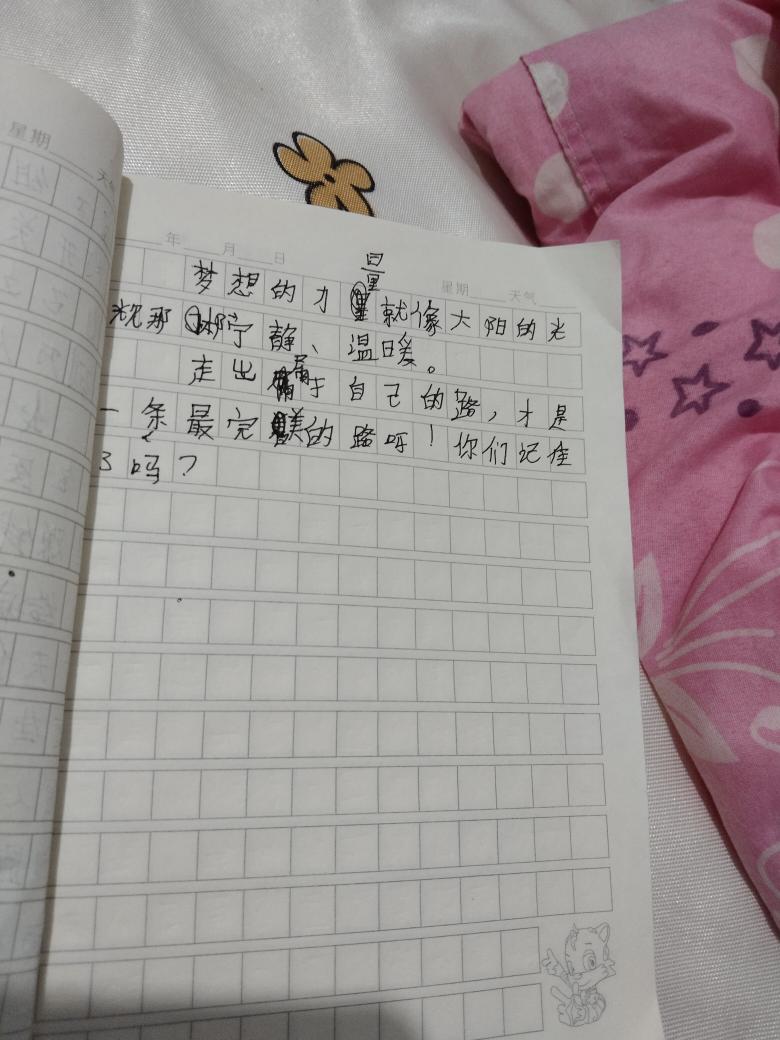 星期 天气
年 月 日 星期 天气
梦想的力量就像太阳的光
就那 宁静、温暖。
走出属于自己的路，才是
一条最完美的路呀！你们记住
了吗？